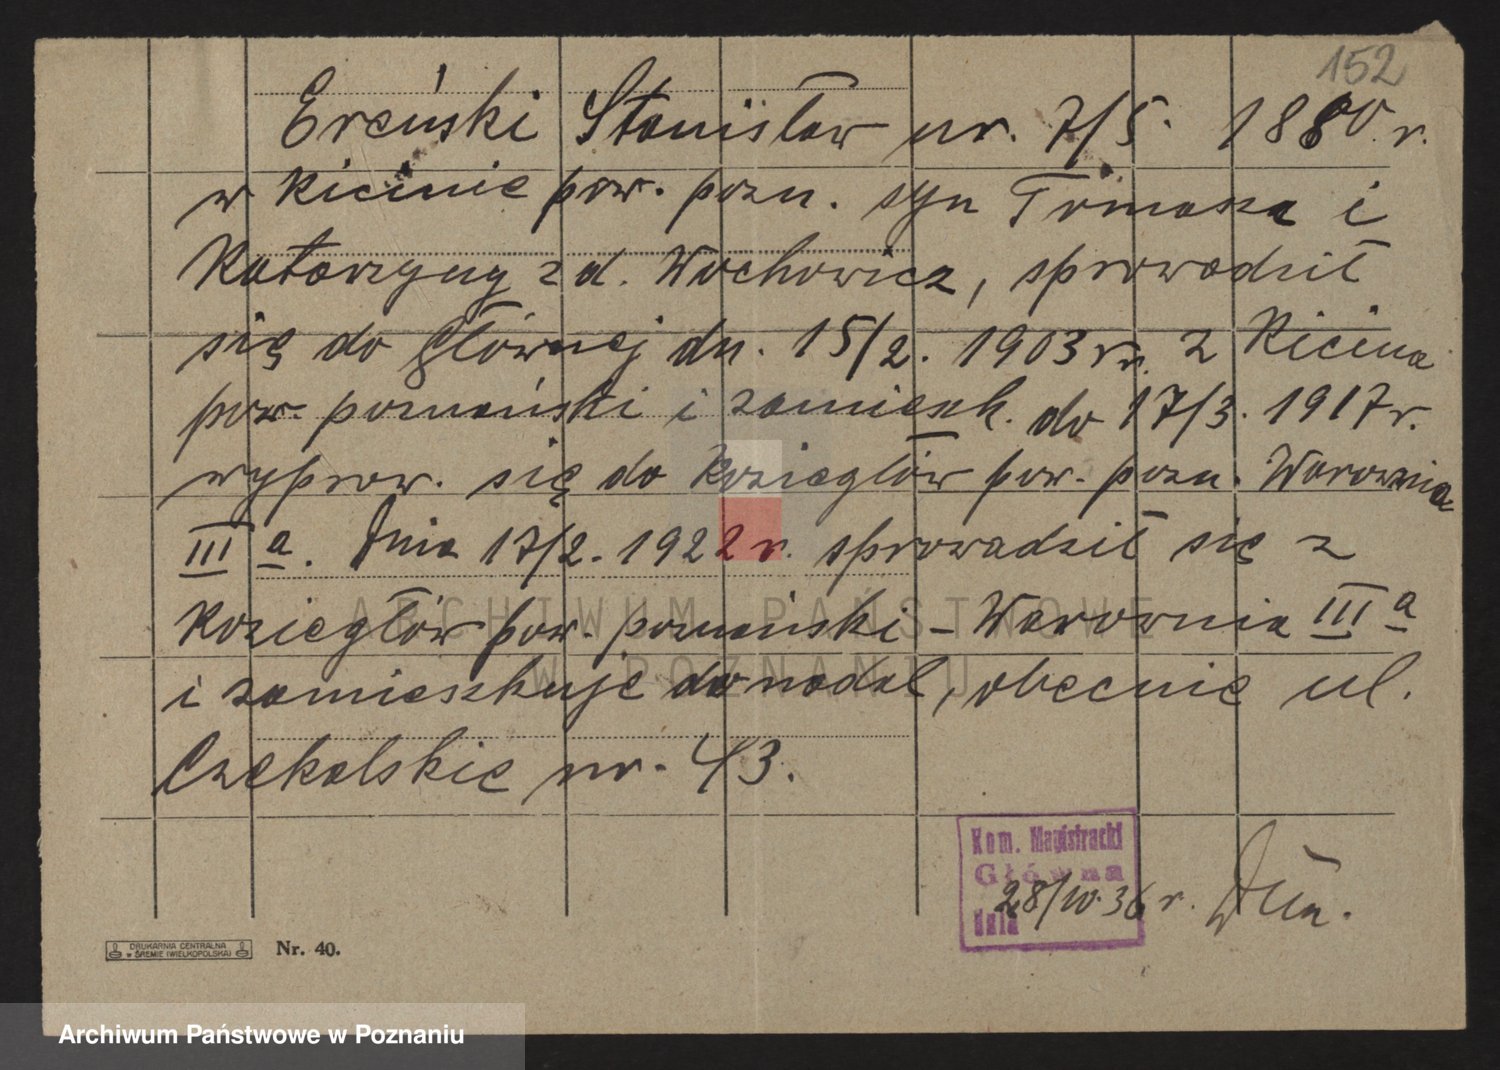 152
Ereński Stanisław ur. 7/5. 1880. r.
w Kicinie pow. pozn. syn Tomasza i
Katarzyny z d. Wochowicz, sprowadził
się do Głównej dn. 15/2. 1903 r. z Kicina
pow. poznański i zamieszk. do 17/3. 1917 r.
wyprow. się do Koziegłów pow. pozn. Warownia
III a. Dnia 17/2. 1922 r. sprowadził się z
Koziegłów pow. poznański – Warownia III a
i zamieszkuje do nadal, obecnie ul.
Czekalskie nr. 43.
Kom. Magistracki
Główna
dnia 28/IV. 36 r.
DRUKARNIA CENTRALNA
w ŚREMIE (WIELKOPOLSKA)
Nr. 40.
ARCHIWUM PAŃSTWOWE
W POZNANIU
Archiwum Państwowe w Poznaniu